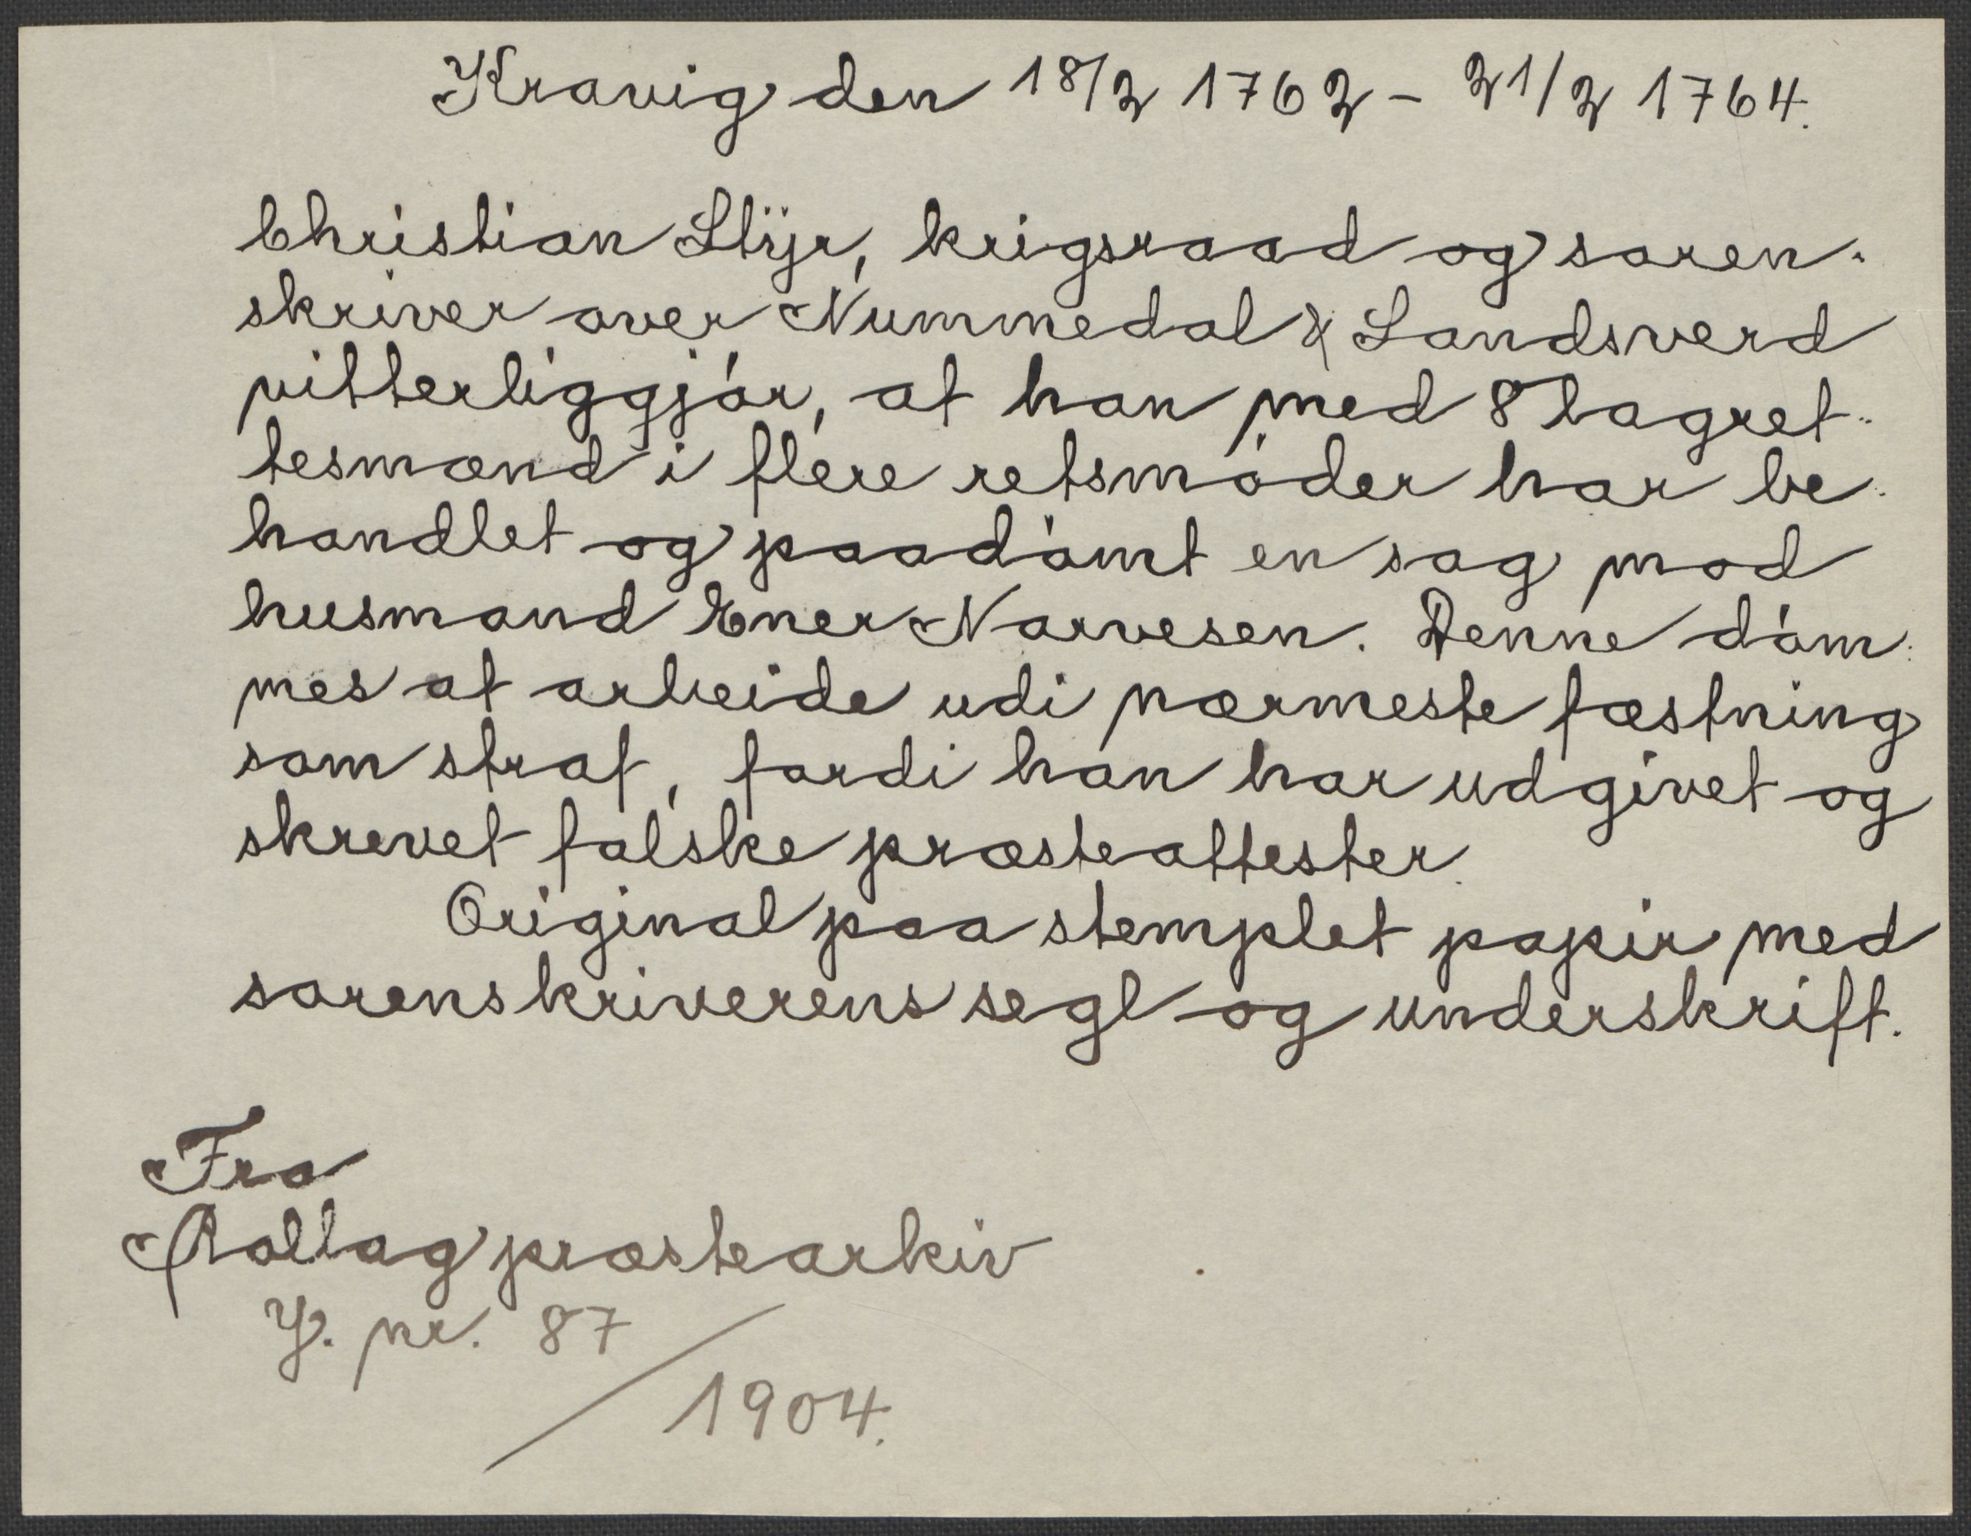 Kravig den 18/2 1762 - 21/2 1764.
Christian Stÿr, krigsraad og soren-
skriver over Nummedal & Sandsverd
vitterliggjór, at han med 8 lagret-
tesmænd i flere retsmóder har be-
handlet og paadómt en sag mod
husmand Ener Narvesen. Denne dóm-
mes at arbeide udi nærmeste fæstning
som straf, fordi han har udgivet og
skrevet falske præsteattester.
Original paa stemplet papir med
sorenskriverens segl og underskrift.
Fra
Rollag præstearkiv
J. nr. 87/1904.